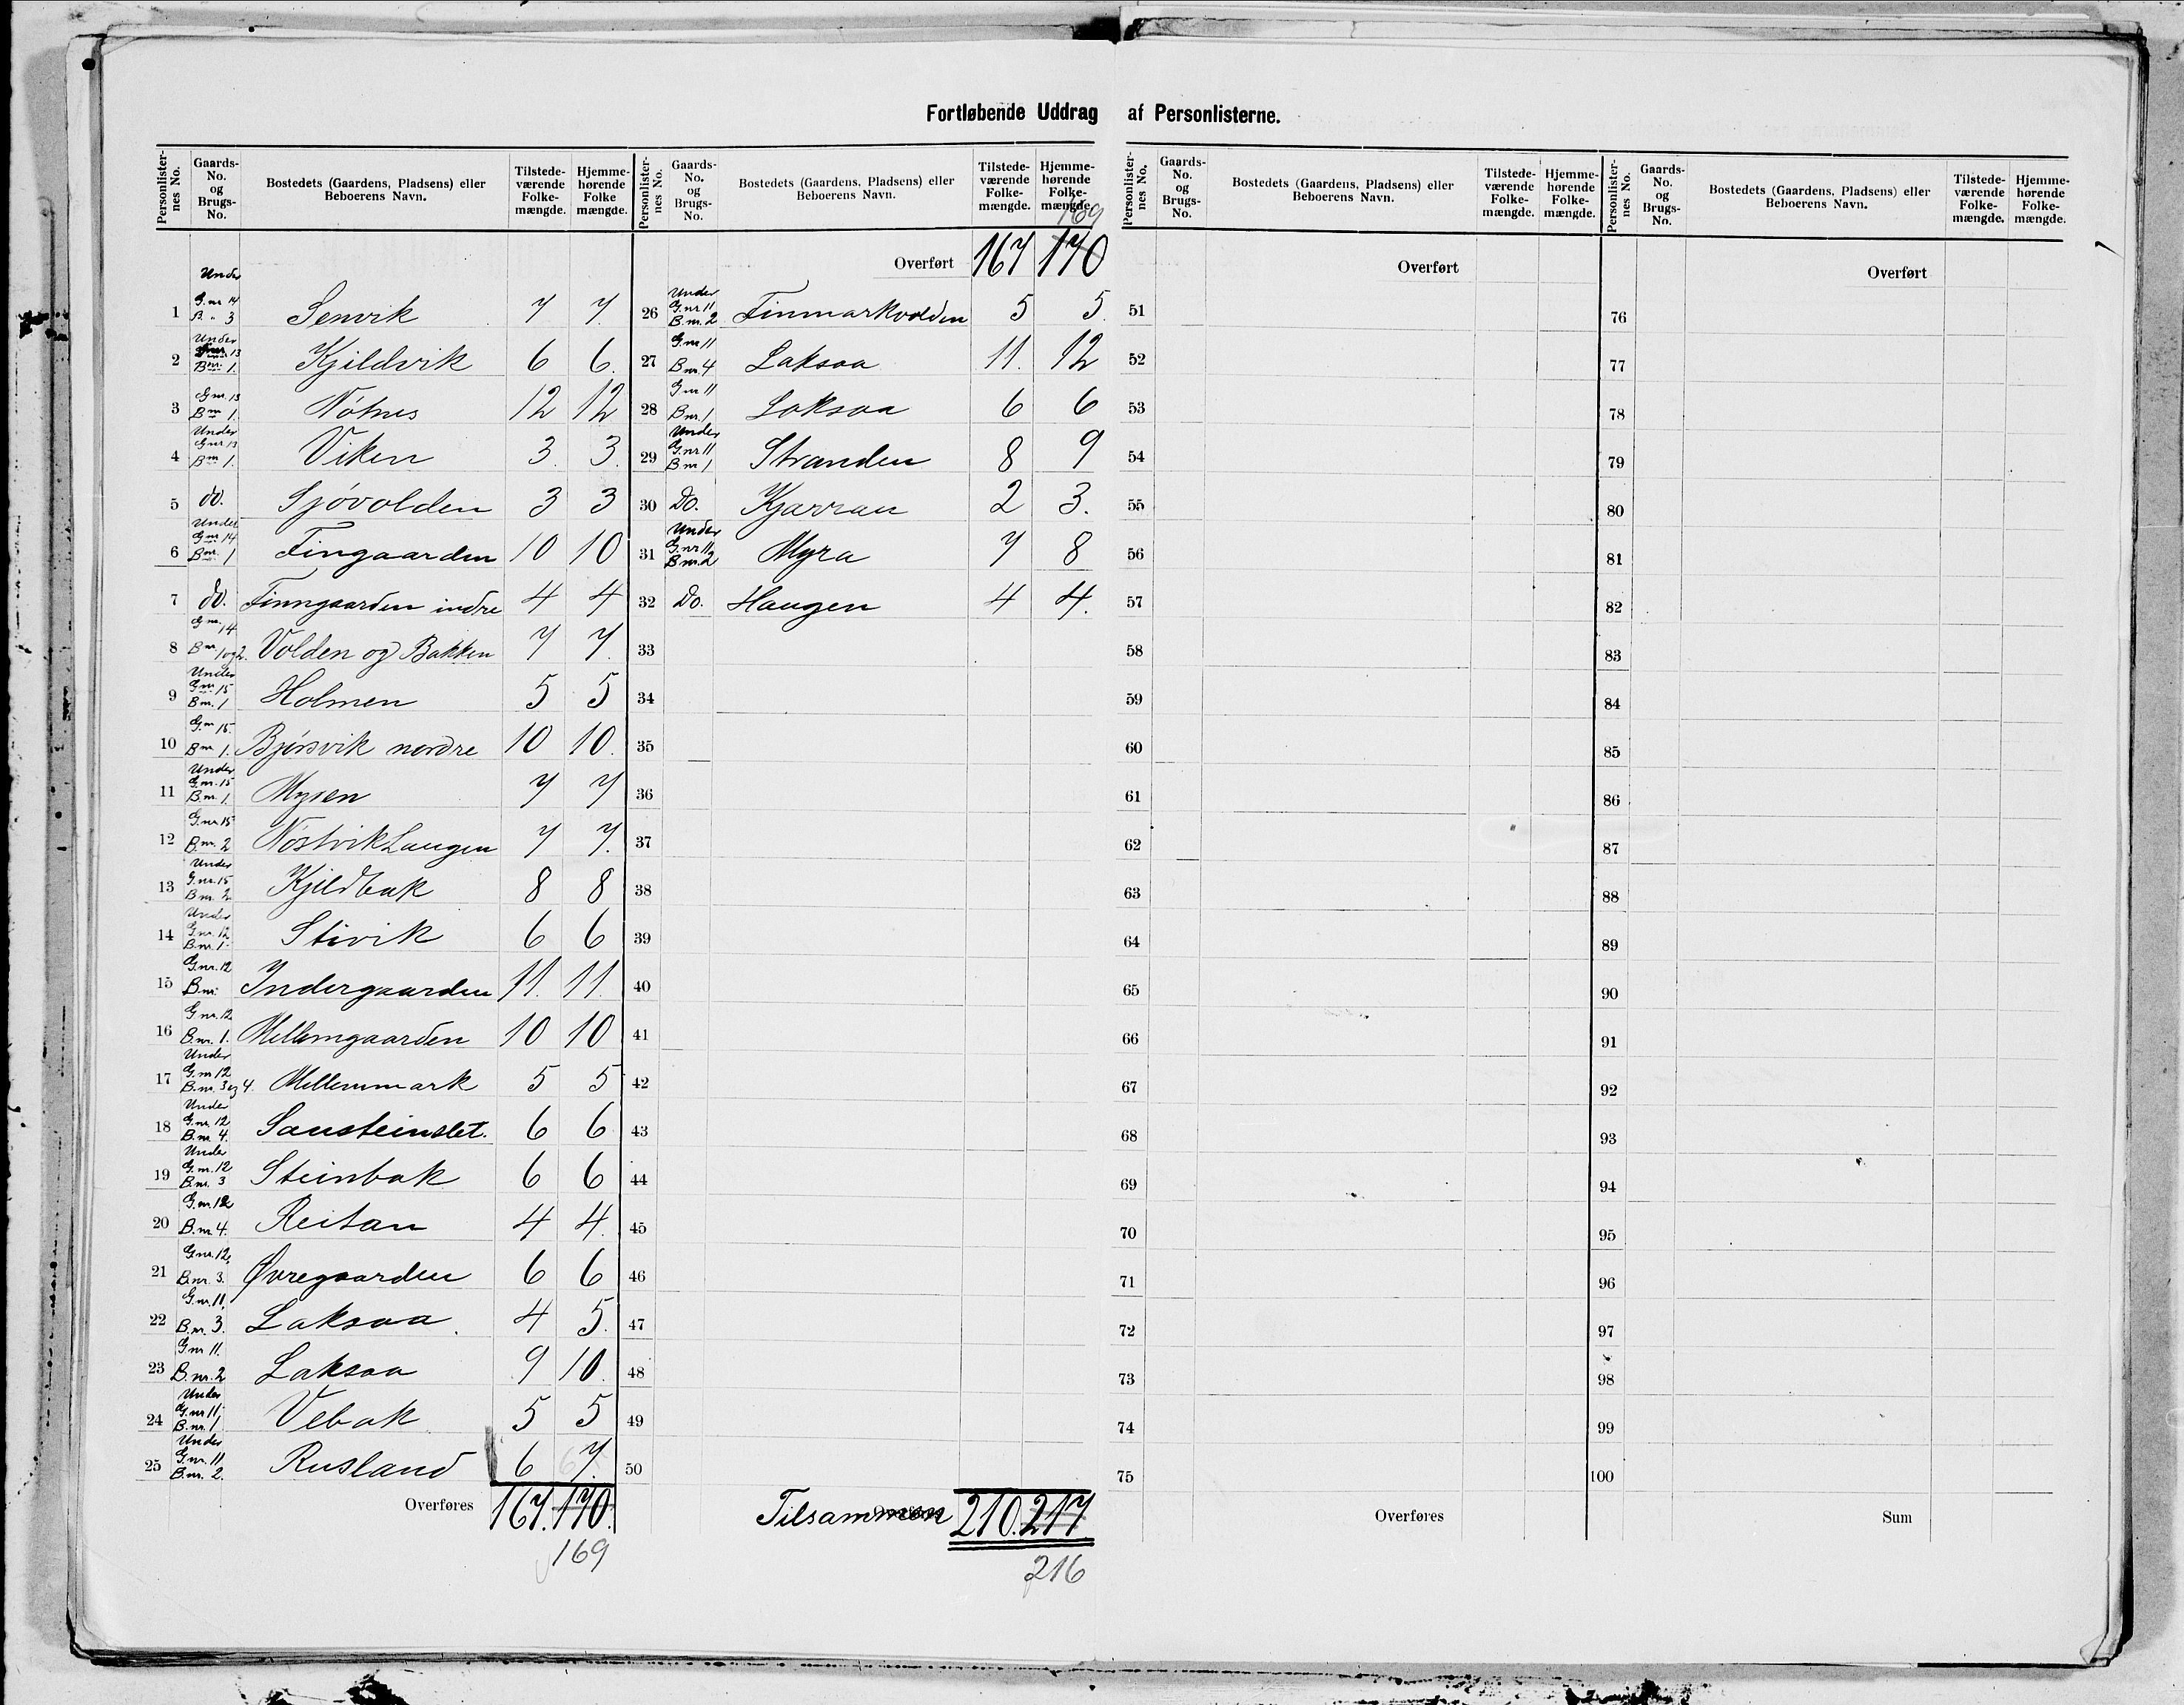 Fortløbende Uddrag af Personlisterne.
Personlister-nes No. | Gaards-No. og Brugs-No. | Bostedets (Gaardens, Pladsens) eller Beboerens Navn. | Tilstede-værende Folke-mængde. | Hjemme-hørende Folke mængde.
1 Under G.nr 14 B. " 3 Senvik 7 7.
2 Under 13 Bnr. 1. Kjildvik 6 6.
3 Gnr. 13 Bnr 1. Nötnes 12 12
4 Under Gnr 13 Bnr 1. Viken 3. 3.
5 do. Sjövolden 3 3
6 Under Gnr 14 Bnr. 1 Fingaarden 10 10
7 do. Finngaarden indre 4 4
8 Gnr. 14 Bnr 1 og 2. Volden og Bakken 7 7.
9 Under Gnr 15 Bnr. 1 Holmen 5 5
10 Gnr 15. Bnr 1. Bjørsvik nordre 10 10.
11 Under G.nr. 15 B.nr. 1. Mysen 7 7
12 G.nr. 15 B.nr. 2 Nöstvikhaugen 7 7.
13 Under G.nr. 15 B.nr. 2 Kjeldbak 8 8
14 Under G.nr. 12 B.nr. 1 Stivik 6 6
15 G.nr. 12 B.nr. Indergaarden 11. 11.
16 G nr. 12 B.nr. 1. Mellemgaarden 10 10
17 Under G.nr 12 B.nr. 3 og 4. Mellemmark 5 5
18 Under G.nr. 12 B.nr 4. Sausteinslet. 6 6
19 Under G.nr. 12 B.nr. 3 Steinbak 6 6
20 G.nr. 12 B.nr 4. Reitan 4 4.
21 G.nr. 12, B.nr. 3. Øvregaarden 6 6
22 G.nr. 11, B.nr. 3. Laksaa 4 5.
23 Gnr 11. B.nr. 2 Laksaa 9 10.
24 Under G.nr 11 B.nr. 1 Vebak 5 5
25 Under G.nr. 11 B.nr. 2. Rusland 6 7.
Overføres 167. 170.
169
Personlister-nes No. | Gaards-No. og Brugs-No. | Bostedets (Gaardens, Pladsens) eller Beboerens Navn. | Tilstede-værende Folke-mængde. | Hjemme-hørende Folke-mængde.
169
Overført 167 170
26 Under G.nr 11 B.nr. 2 Finmarkvolden 5 5.
27 G.nr 11 B.nr. 4 Laksaa 11. 12
28 G nr 11 B.nr. 1 Laksaa 6 6
29 Under G.nr 11 B nr 1 Stranden 8 9
30 Do. Kjarran 2 3.
31 Under G.nr 11, B nr. 2 Myra 7 8
32 Do. Haugen 4 4.
33
34
35
36
37
38
39
40
41
42
43
44
45
46
47
48
49
50
Tilsammen 210. 217
216
Personlister-nes No. | Gaards-No. og Brugs-No. | Bostedets (Gaardens, Pladsens) eller Beboerens Navn. | Tilstede-værende Folke-mængde. | Hjemme-hørende Folke-mængde.
Overført
51
52
53
54
55
56
57
58
59
60
61
62
63
64
65
66
67
68
69
70
71
72
73
74
75
Overføres
Personlister-nes No. | Gaards-No. og Brugs-No. | Bostedets (Gaardens, Pladsens) eller Beboerens Navn. | Tilstede-værende Folke-mængde. | Hjemme-hørende Folke-mængde.
Overført
76
77
78
79
80
81
82
83
84
85
86
87
88
89
90
91
92
93
94
95
96
97
98
99
100
Sum